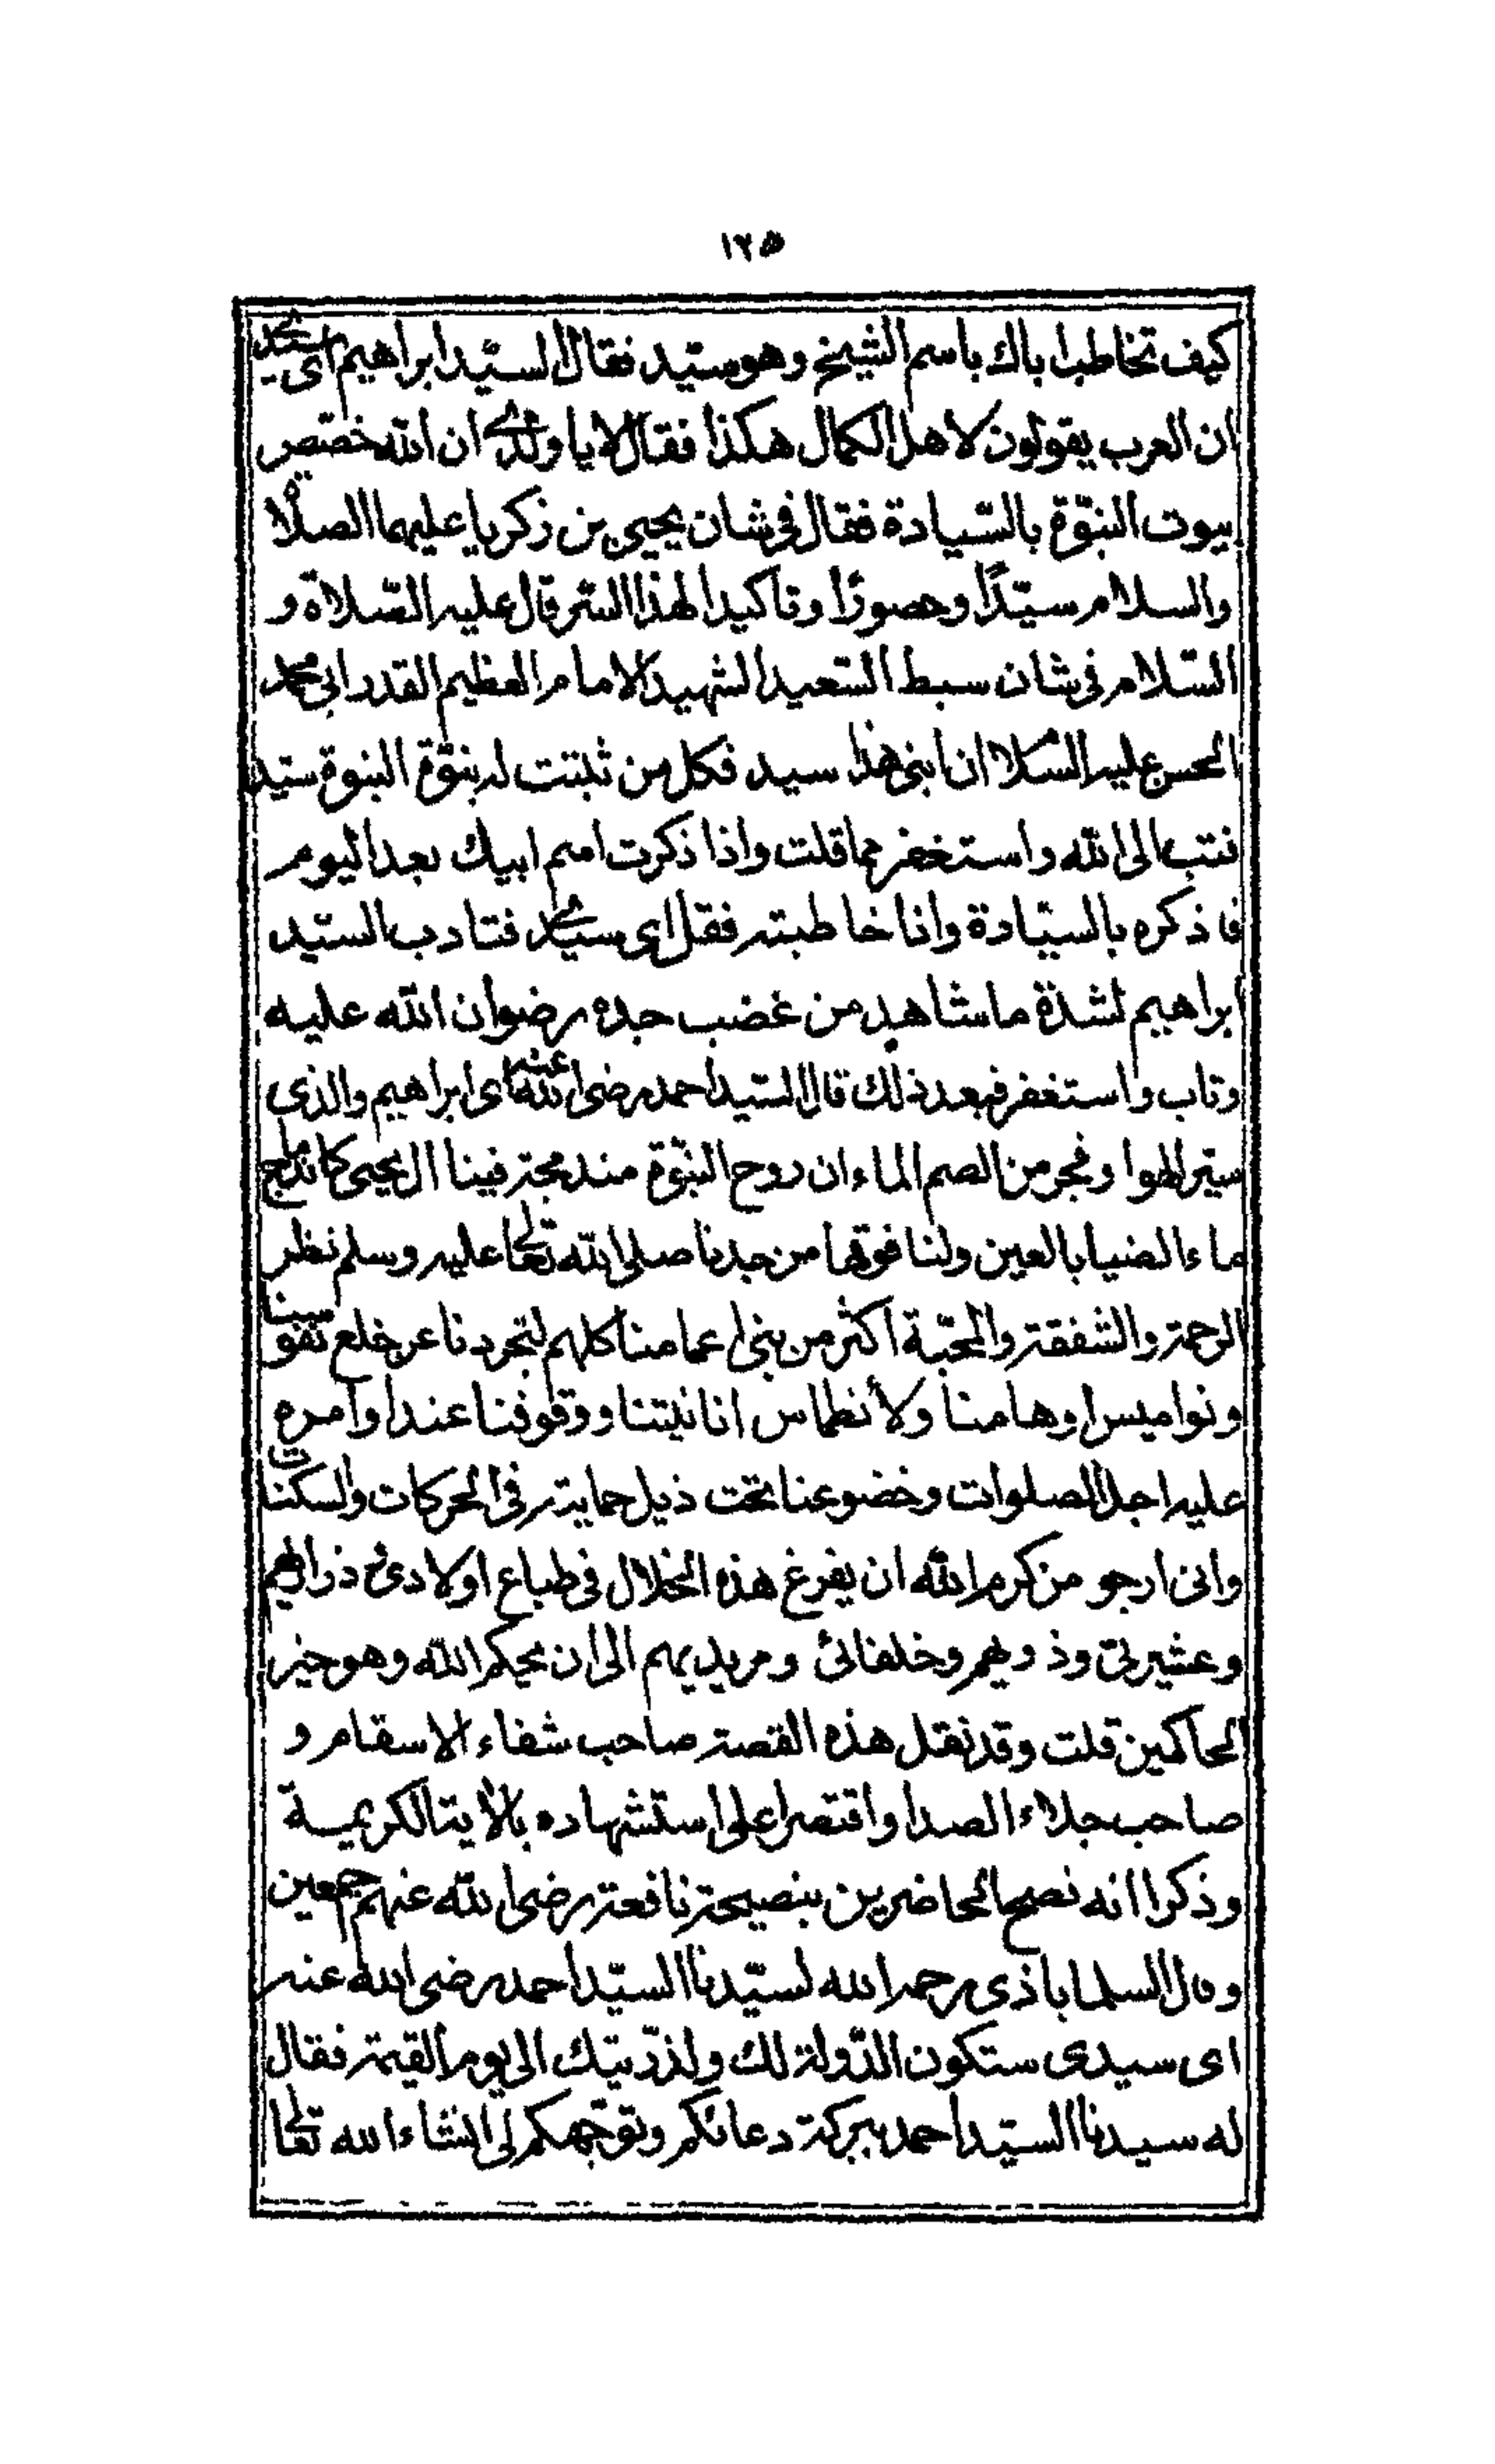 ١٢٥
كيف تخاطب اباك باسم الشيخ وهو سيّد فقال السيّد ابراهيم اى سيدى
ان العرب يقولون لاهل الكمال هكذا فقال لا يا ولدى ان الله خصّص
بيوت النبوّة بالسّيادة فقال فى شان يحيى بن زكريا عليهما الصلاة
والسلام سيّدًا وحصورًا وتاكيدا لهذا السّر قال عليه الصّلاة و
السّلام فى شان سبط السّعيد الشهيد الامام العظيم القدر ابى محمد
الحسن عليه السّلام ان ابنى هذا سيد فكل من ثبتت له بنوّة النبوة سيّد
فتب الى الله واستغفر مما قلت واذا ذكرت اسم ابيك بعد اليوم
فاذكره بالسيّادة واذا خاطبته فقل اى سيّدى فتادب السيّد
ابراهيم لشدّة ما شاهد من غضب جده رضوان الله عليه
وتاب واستغفر فبعد ذلك قال السّيد احمد رضى الله عنه اى ابراهيم والذى
سيّر الهوا وفجر من الصم الماء ان روح النبوّة مندمجة فينا ال يحيى كاندماج
ماء الضيا بالعين ولنا فوقها من جدنا صلى الله تعالى عليه وسلم نظر
الرحمة والشفقة والمحبّة اكثر من بنى اعمامنا كلهم لتجردنا عن خلع نفوسنا
ونواميس اوهامنا ولأنطماس انانيّتنا ووقوفنا عند اوامره
عليه اجل الصلوات وخضوعنا تحت ذيل حمايته فى الحركات والسكنات
وانى ارجو من كرم الله ان يفرغ هذه الخلال فى طباع اولادى ذراريهم
وعشيرتى وذويهم وخلفائى ومريديهم الى ان يحكم الله وهو خير
الحاكمين قلت وقد نقل هذه القصة صاحب شفاء الاسقام و
صاحب جلاء الصدا واقتصرا على استشهاده بالاية الكريمية
وذكرا انه نصح الحاضرين بنصيحة نافعة رضى الله عنهم اجمعين
وقال السلماباذى رحمه الله لسيّدنا السيّد احمد رضى الله عنه
اى سيدى ستكون الدّولة لك ولذرّيتك الى يوم القيمة فقال
له سيدنا السيّد احمد ببركة دعائكم وتوجّهكم لى انشاء الله تعالى